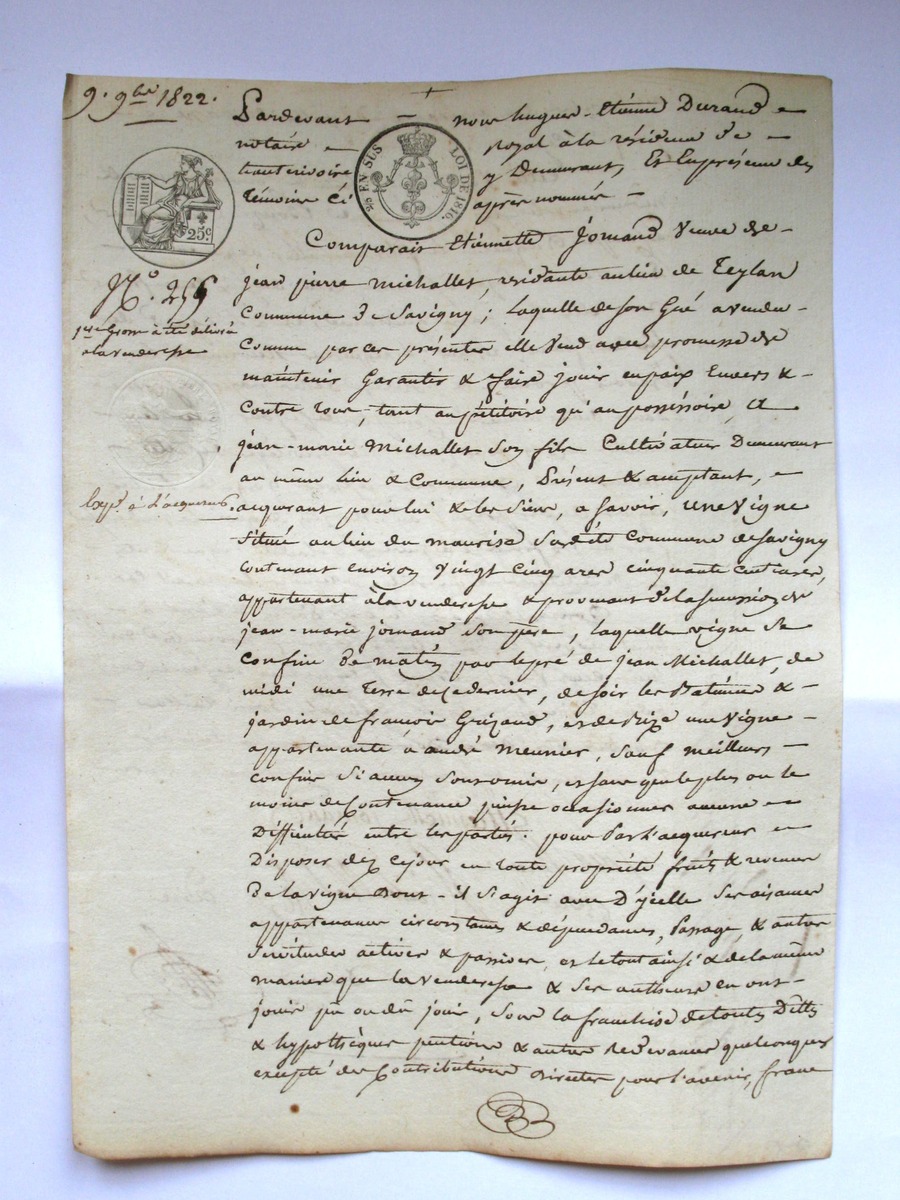 9. 9bre 1822.
Pardevant — nous hugues-Etienne Durand
notaire royal à la résidence de
hauterivoire y Demeurant, Et En présence des
témoins ci après nommés
25 EN SUS LOI DE 1816.
25c.
Comparait Etiennette Jomand Veuve de
N°. 255
jean pierre michallet, residante au lieu de Teylan
1ere Grosse a été délivrée
à la venderesse
Commune de Savigny; laquelle de son Gré a vendu
Comme par ces présentes elle Vend avec promesse de
maintenir Garantir & faire jouir en paix Envers &
Contre tous, tant au pétitoire qu'au possessoire, A
jean-marie Michallet son fils Cultivateur Demeurant
au même lieu & Commune, Présent & acceptant,
Exp. à l'acquereur.
acquerant pour lui & les siens, a savoir, une Vigne
Située au lieu du Commune de Savigny
contenant environ Vingt Cinq ares cinquante centiares,
appartenant à la venderesse & provenant de la succession de
jean-marie jomand son père, laquelle vigne se
confine de matin par le pré de jean Michallet, de
midi une Terre de ce dernier, de soir les Batiments &
jardin de françois Grizaud, et de bize une Vigne
appartenante à andré Meunier, sauf meilleurs
confins si aucuns sont omis, et sans que le plus ou le
moins de Contenance puisse occasionner aucune
Difficultés entre les parties. pour Par l'acquereur
Disposer dez ce jour en toute propriété fruits & revenus
De la vigne Dont-il s'agit avec D'ycelle ses aisances
appartenances circonstances & dépendances, Passage & autres
Servitudes actives & passives, et le tout ainsi & de la même
maniere que la venderesse & ses autheurs en ont
joui pu ou dû jouir, sous la franchise de toutes Dettes
& hypothèques pentions & autres Redevances quelconques
excepté des Contributions Directes pour l'avenir, franc